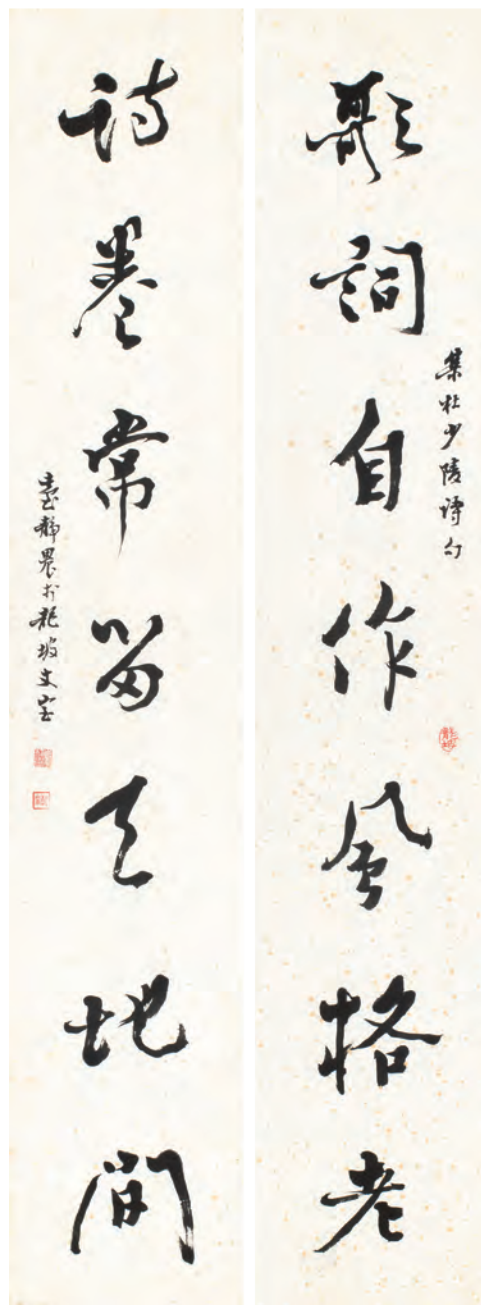 歌詞自作風格老
集杜少陵詩句
詩卷常留天地間
臺靜農於龍坡丈室